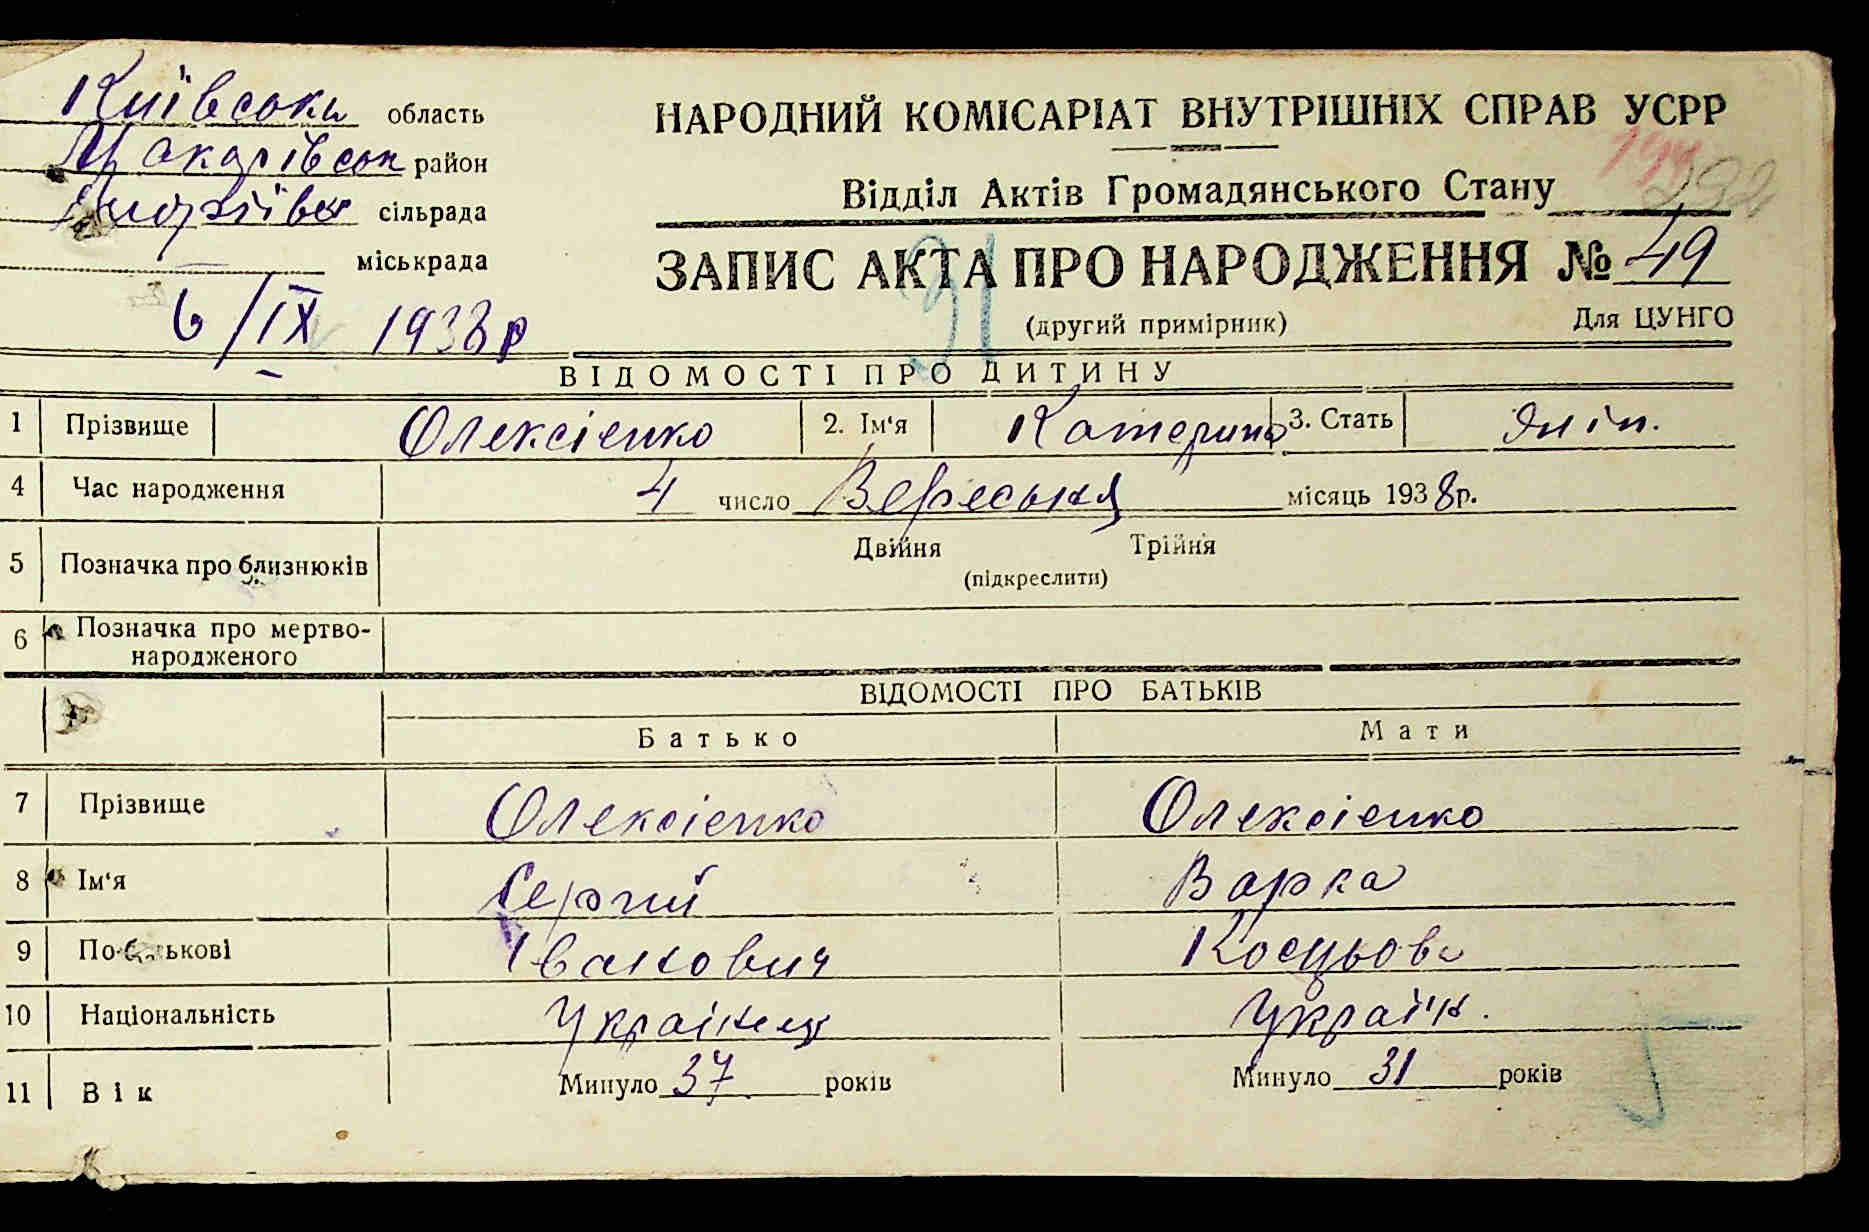 Київська область
НАРОДНИЙ КОМІСАРІАТ ВНУТРІШНІХ СПРАВ УСРР
Макарівськ район
Відділ Актів Громадянського Стану
292
сільрада
міськрада
ЗАПИС АКТА ПРО НАРОДЖЕННЯ № 49
6/IX 1938 р
(другий примірник) Для ЦУНГО
ВІДОМОСТІ ПРО ДИТИНУ
1 Прізвище Олексієнко 2. Ім'я Катерина 3. Стать Жін.
4 Час народження 4 число Вересня місяць 1938р.
5 Позначка про близнюків Двійня Трійня
(підкреслити)
6 Позначка про мертво-
народженого
ВІДОМОСТІ ПРО БАТЬКІВ
Батько Мати
7 Прізвище Олексієнко Олексієнко
8 Ім'я Сергій Варка
9 По-батькові Іванович
10 Національність Українець Україн.
11 Вік Минуло 37 років Минуло 31 років